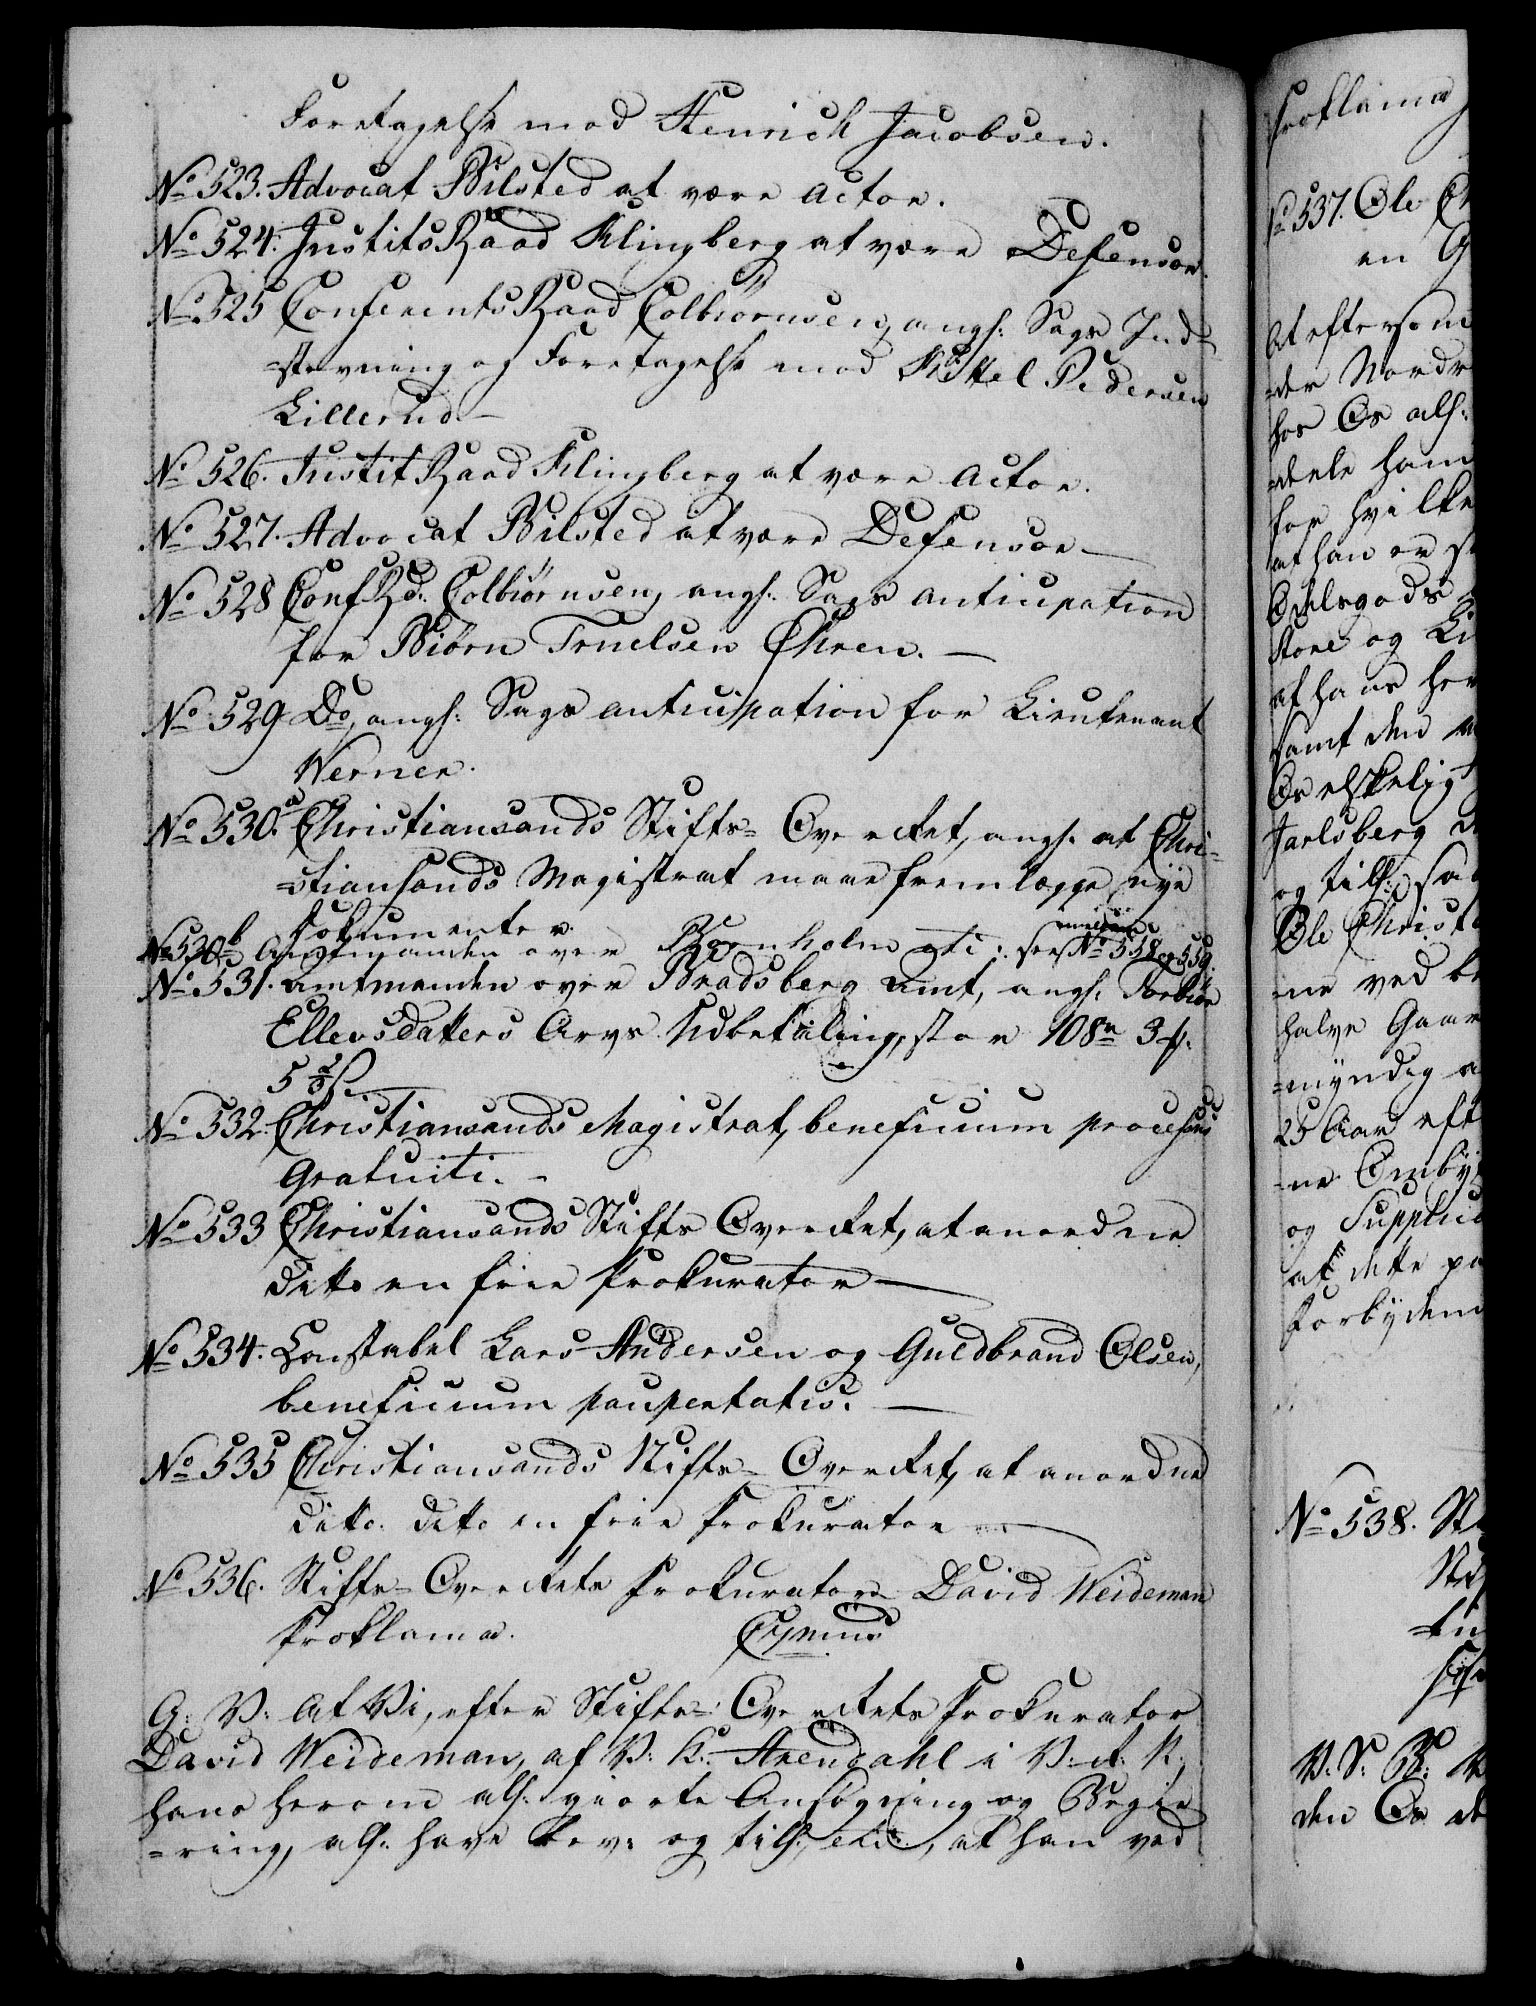 Foretagelse mod Henrich Jacobsen.
No 523. Advocat Bilsted at være Actor.
No 524. JustitsRaad Klingberg at være Defensor.
No 525 ConferentsRaad Colbiørnsen, angl: Sags Ind-
=stevning og Foretagelse mod Kittel Pedersen
Lillerud -
No 526. JustitRaad Klingberg at være Actor.
No 527. Advocat Bilsted at være Defensor -
No 528 ConfRd: Colbiørnsen, angl: Sags anticipation
for Biørn Truelsen Øhren. -
No 529 Do, angl: Sags anticipation for Lieutenant
Werner.
No 530.a Christiansands Stifts= Overret, angl. at Chri-
=stiansands Magistrat maae fremlægge nye
Dokumenter.
No 530b Amtmanden over Bornholm etc: see No 558 og 559.
No 531. Amtmanden over Bradsberg Amt, angl: Torbiør
Ellevsdatters Arvs Udbetaling, stor 108 rd 3 #.
5 2/3 s.
No 532. Christiansands Magistrat, beneficium processus
Gratuiti. -
No 533 Christiansands Stifts Overret, at anordne
ditto en frie Prokurator -
No 534. Constabel Lars Andersen og Guldbrand Olsen,
beneficium paupertatis. -
No 535 Christiansands Stifts= Overret, at anordne
ditto. ditto en frie Prokurator -
No 536. Stifts= Overrets Prokurator David Weideman
Proklama.
G: V: At Vi, efter Stifts= Overrets Prokurator
David Weideman, af V: K: Arendahl i V: R: N:,
hans herom all: giorte Ansøgning og Begie
=ring, all: have bev: og till:, etc:, at han ved
Proklama
No 537. Ole Ch
en G
At eftersom
=der Nordr
hos Os all:
=dele ham
for hvilke
at han er st
Odelsgods
Store og Li
af hans her
samt den
Os elskelig
Jarlsberg
og till: saa
Ole Christ
=ne ved be
halve Gaar
=myndig a
25 Aar eft
=ne Ombyt
og Supplica
at dette pa
Forbydend
No 538. St
Sti
V: S: G: V
den Os al